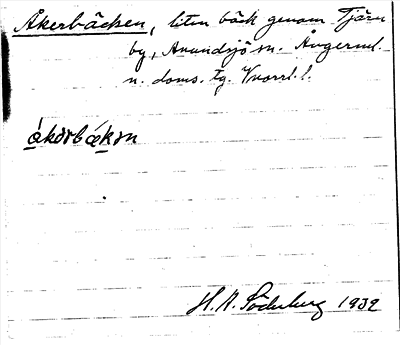 Åkerbäcken, liten bäck genom Tjärn
by, Anundsjö sn. Ångerml.
n. doms. tg. Vnorrl. l.
åkərbäkən
H. A. Söderberg 1932